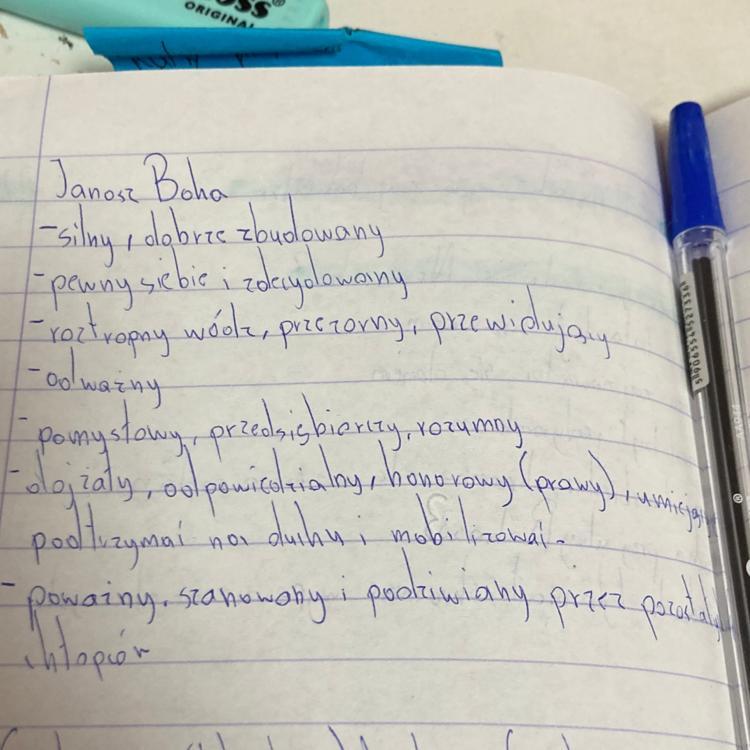 OSS®
ORIGINAL
Janosz Boha
-silny, dobrze zbudowany
-pewny siebie i zdecydowany
-roztropny wódz, przezorny, przewidujący
-odważny
-pomysłowy, przedsiębiorczy, rozumny
-dojrzały, odpowiedzialny, honorowy (prawy), umiejący
podtrzymać na duchu i mobilizować.
-poważny, szanowany i podziwiany przez pozostałych
chłopców
5906554527336